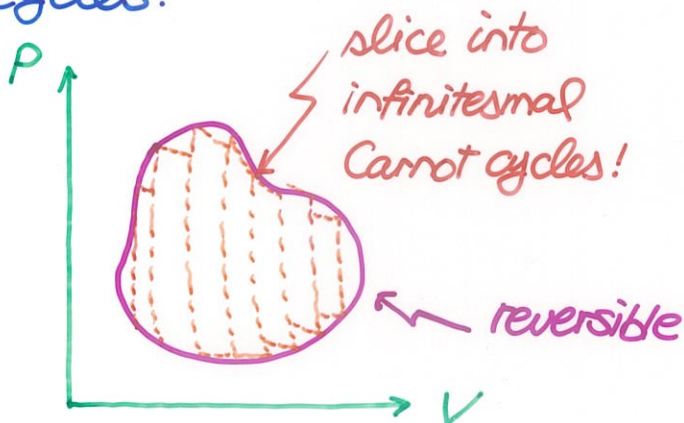 cycles!
P
slice into
infinitesmal
Carnot cycles!
reversible
V